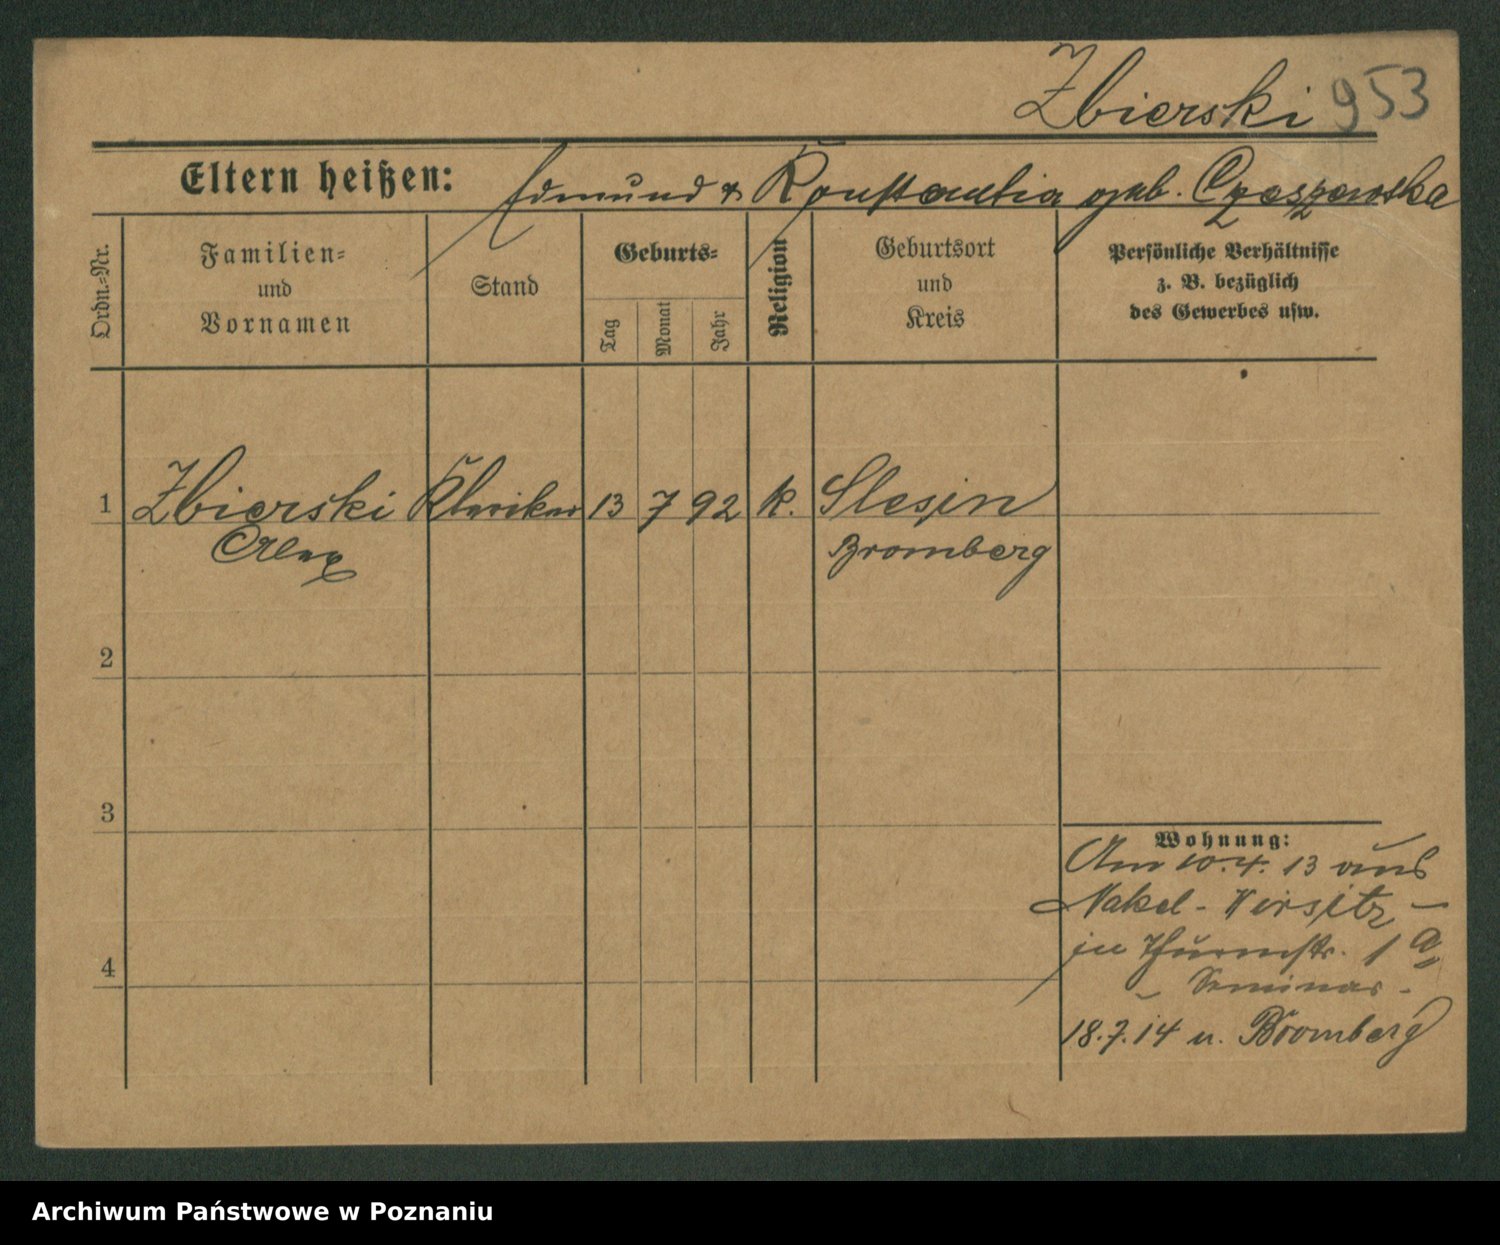 Zbierski 953
Eltern heißen: Edmund & Konstantia geb. Czaszewska
Ordn.-Nr.
Familien-
und
Vornamen
Stand
Geburts-
Tag
Monat
Jahr
Religion
Geburtsort
und
Kreis
Persönliche Verhältnisse
z. B. bezüglich
des Gewerbes usw.
1 Zbierski Kleriker 13 7 92 k. Slesin
Alex Bromberg
2
3
4
Wohnung:
Am 10.4.13 aus
Nakel - Wirsitz -
in Thurmstr. 1a
- Seminar -
18.7.14 n. Bromberg
Archiwum Państwowe w Poznaniu